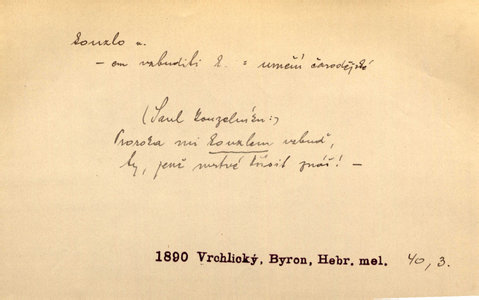 kouzlo n.
– em vzbuditi k. = umění čarodějské
(Saul kouzelníku:)
Proroka mi kouzlem vzbuď,
ty, jenž mrtvé křísit znáš! –
1890 Vrchlický, Byron, Hebr. mel. 40, 3.